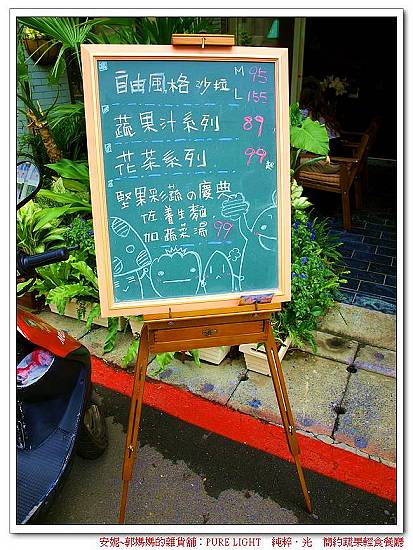 自由風格沙拉 M 95
L 155
蔬果汁系列 89
花菜系列 99起
堅果彩蔬の慶典
佐養生麵
加蔬菜湯 99
安妮~郭媽媽的雜貨舖：PURE LIGHT 純粹‧光 簡約蔬果輕食餐廳